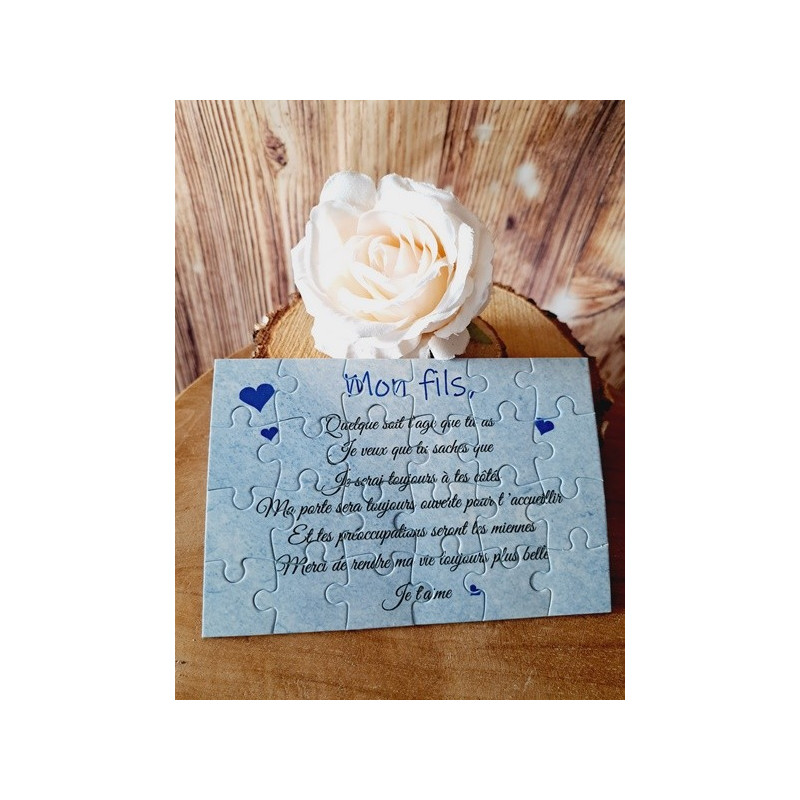 Mon fils,
Quelque soit l'age que tu as
Je veux que tu saches que
Je serai toujours à tes côtés
Ma porte sera toujours ouverte pour t'accueillir
Et tes préoccupations seront les miennes
Merci de rendre ma vie toujours plus belle
Je t'aime